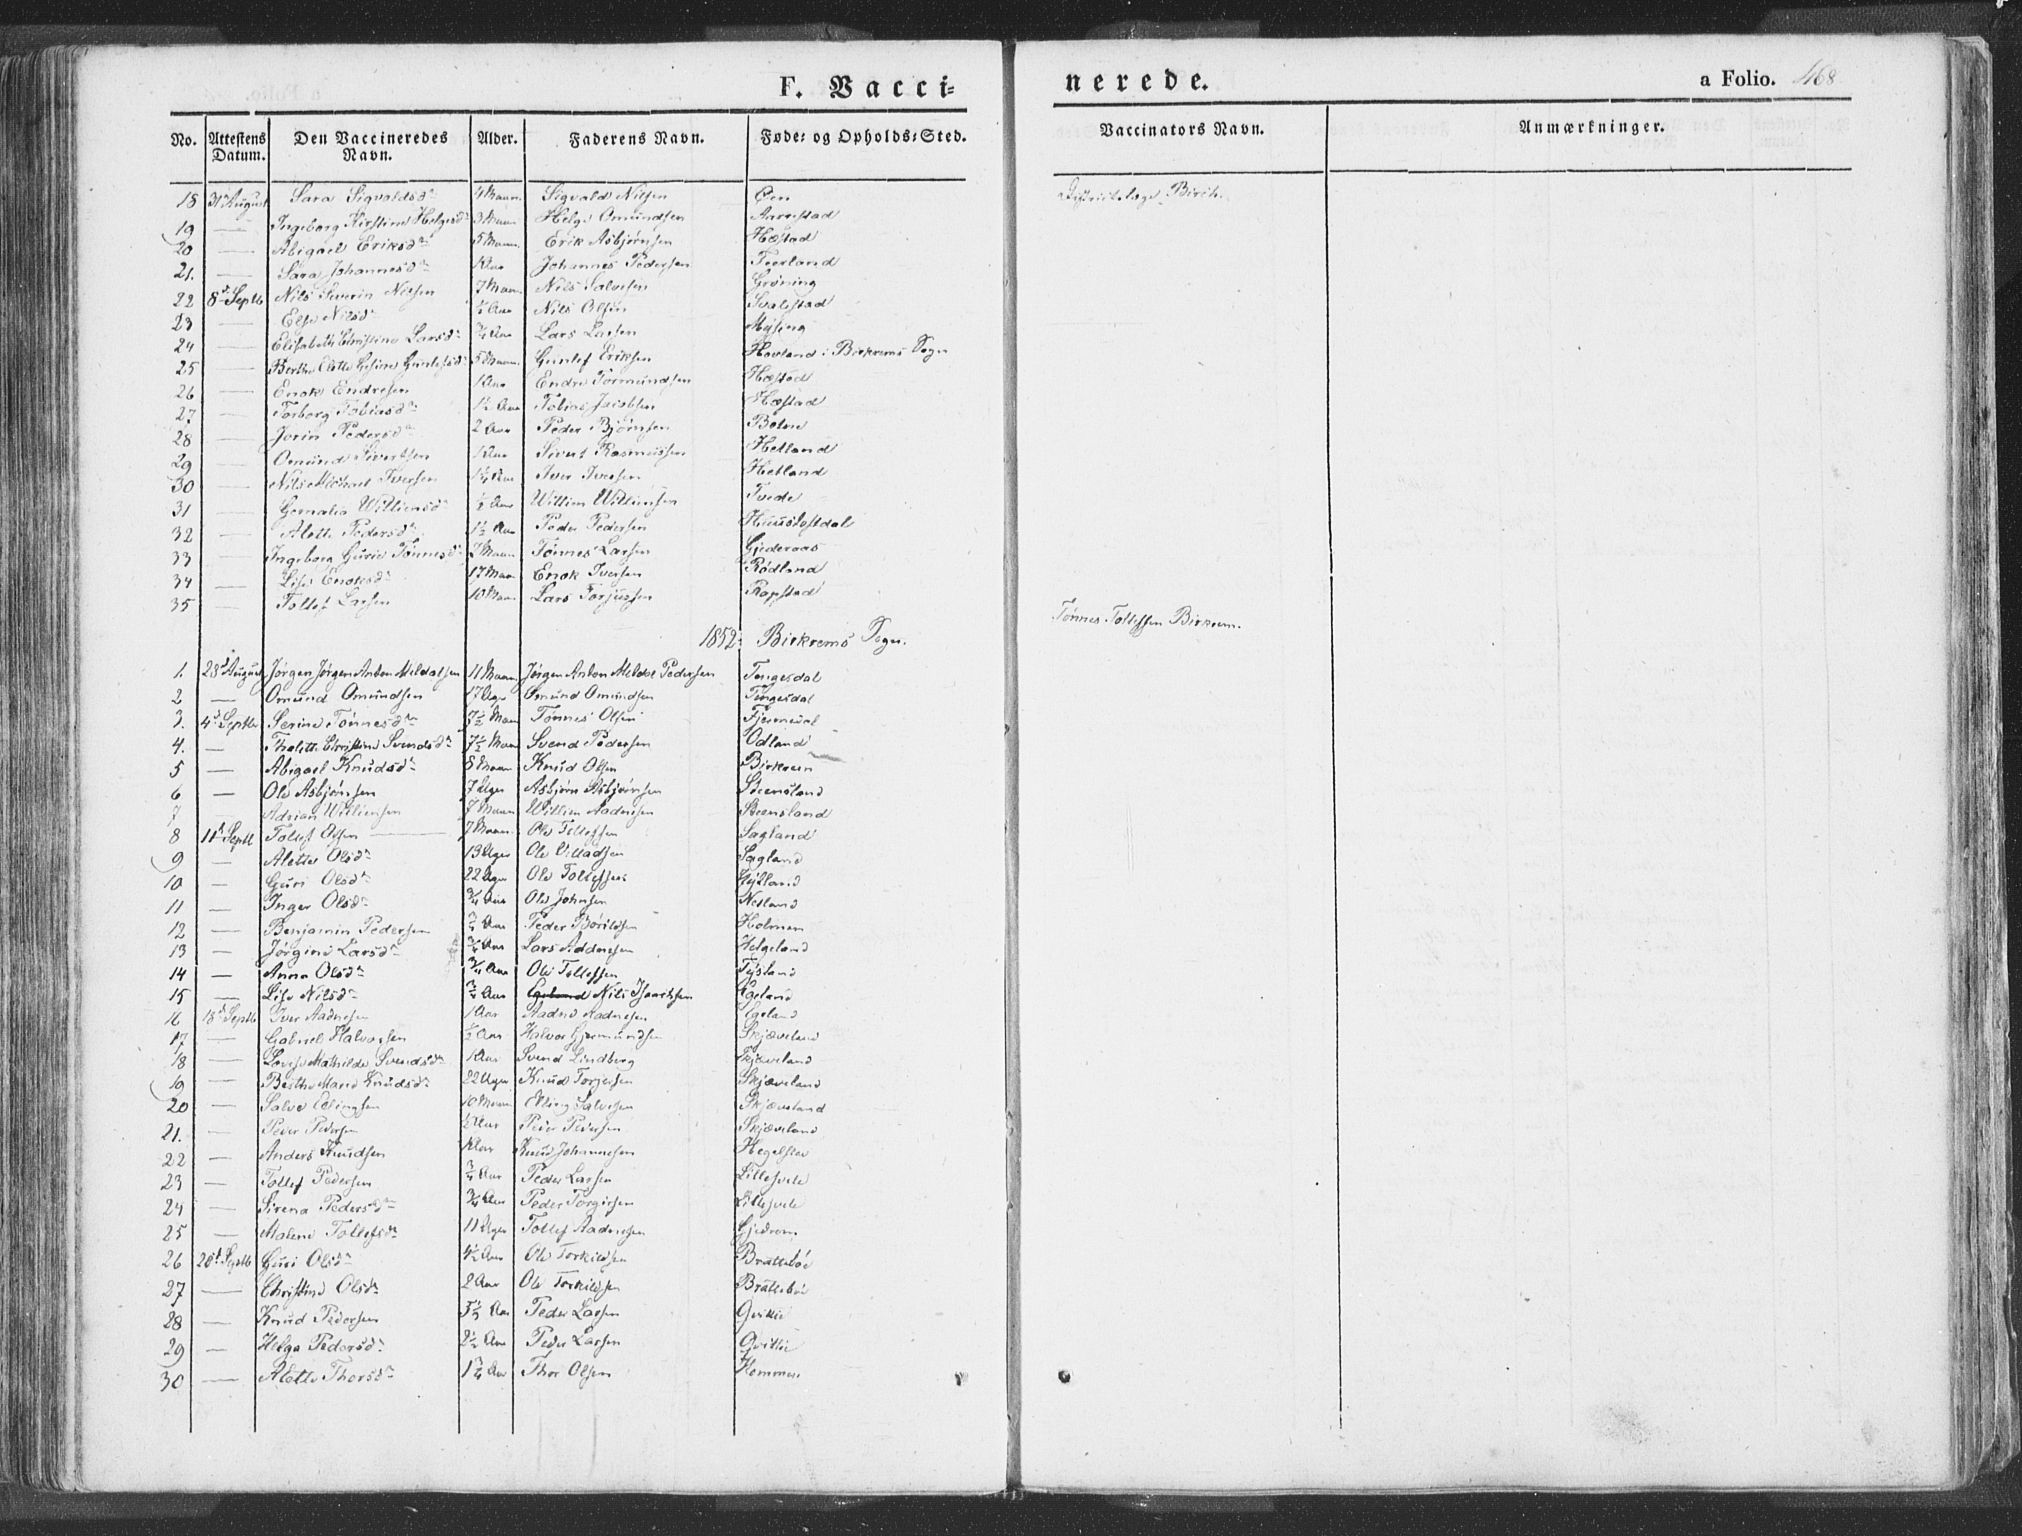 F. Vacci-
nerede.
a Folio. 468
No. Attestens Datum. Den Vaccineredes Navn. Alder. Faderens Navn. Føde- og Opholds-Sted. Vaccinators Navn. Anmærkninger.
18 31 August Sara Sigvaldsdr 4 Maan Sigvald Nilsen Øen Districtslæge Birch.
19 — Ingeborg Kirstine Helgesdr 3 Maan Helge Omundsen Aarrestad
20 — Abigael Eriksdr 5 Maan Erik Asbjørnsen Hæstad
21. — Sara Johannesdr 1 Aar Johannes Pedersen Teerland
22 8d Septb Nils Severin Nilsen 7 Maan Nils Salvesen Grøning
23 — Else Nilsdr ½ Aar Nils Olsen Svalestad
24 — Elisabeth Christine Larsdr ¾ Aar Lars Larsen Mysing
25 — Berthe Gunlefsdr 5 Maan Gunlef Eriksen Hovland i Birkrems Sogn
26 — Enok Endresen 1 Aar Endre Tormundsen Hæstad
27 — Torborg Tobiasdr 1½ Aar Tobias Jacobsen Hæstad
28 — Jorin Pedersdr 2 Aar Peder Bjørnsen Botne
29 — Omund Sivertsen 1 Aar Sivert Rasmussen Hetland
30 — Nils Michael Iversen 1¼ Aar Iver Iversen Hetland
31 — Gornalia Williensdr ½ Aar Willien Williensen Tvede
32 — Alette Pedersdr 1½ Aar Peder Pedersen
33 — Ingeborg Gurie Tønnesdr 2 Maan Tønnes Larsen Gjederaas
34 — Lise Enoksdr 17 Maan Enok Iversen Rødland
35 — Tollef Larsen 10 Maan Lars Torjussen Rapstad
1852: Birkrems Sogn.
Tønnes Tollefsen Birkrem.
1. 28d August Jørgen Jørgen Anton Meldalsen 11 Maan Jørgen Anton Meldal Pedersen Tengesdal
2 — Omund Omundsen 17 Uger Omund Omundsen Tengesdal
3. 4d Septb Serine Tønnesdr 7½ Maan Tønnes Olsen Fjermedal
4. — Thalette Christine Svendsdr 7½ Maan Svend Pedersen Odland
5 — Abigael Knudsdr 8 Maan Knud Olsen Birkrem
6 — Ole Asbjørnsen 7 Uger Asbjørn Asbjørnsen Steensland
7 Adrian Williensen 7 Maan Willien Aadnesen Steensland
8 11d Septb Tollef Olsen 7 Maan Ole Tollefsen Sagland
9 — Alette Olsdr 13 Uger Ole Villadsen Sagland
10 — Guri Olsdr 22 Uger Ole Tollefsen
11 — Inger Olsdr ¾ Aar Ole Johnsen Netland
12 — Benjamin Pedersen ¾ Aar Peder Børildsen Holmen
13 — Jørgine Larsdr ¾ Aar Lars Addnesen Helgeland
14 — Anna Olsdr ¾ Aar Ole Tollefsen Tysland
15 — Lise Nilsdr ¾ Aar Egeland Nils Isaacksen Egeland
16 18d Septb Iver Aadnesen 1 Aar Aadne Aadnesen Egeland
17 — Gabriel Halvorsen ½ Aar Halvor Gjermundsen Skjæveland
18 — Lovise Mathilde Svendsdr 1 Aar Svend Lindberg Skjæveland
19 — Berthe Marie Knudsdr 22 Uger Knud Torjersen Skjæveland
20 — Salve Ellingsen 10 Maan Elling Salvesen Skjæveland
21. — Peder Pedersen ½ Aar Peder Pedersen Skjæveland
22 — Anders Knudsen 1 Aar Knud Johannesen Hegelstad
23 — Tollef Pedersen ¾ Aar Peder Larsen Lillesvele
24 — Sirena Pedersdr ¾ Aar Peder Torgersen Lillesvele
25 — Malene Tollefsdr 11 Uger Tollef Aadnesen Gjedrem
26 28d Septb Guri Olsdr 4½ Aar Ole Torkildsen Brattebøe
27 — Christine Olsdr 2 Aar Ole Torkildsen Brattebøe
28 — Knud Pedersen 5½ Aar Peder Larsen Qvitlie
29 — Helga Pedersdr 2½ Aar Peder Larsen Qvitlie
30 — Alette Thorsdr 1¾ Aar Thor Olsen Hommen